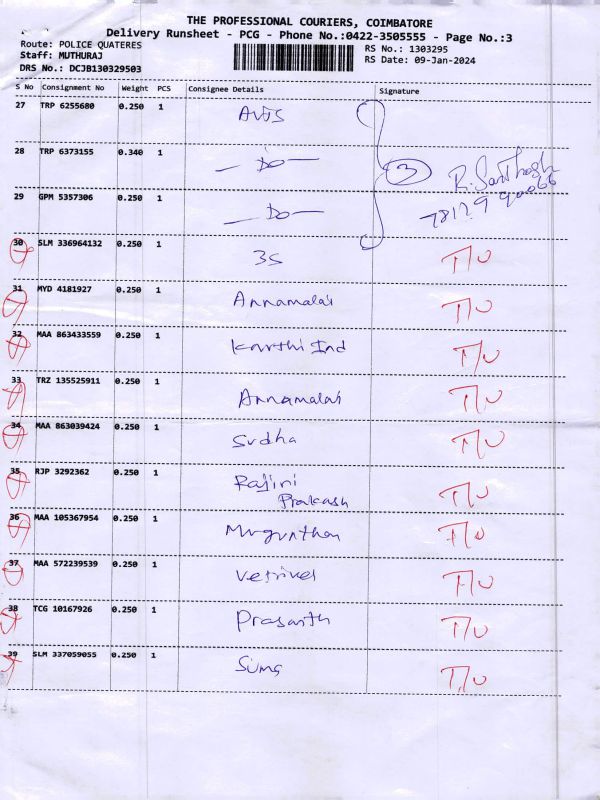 THE PROFESSIONAL COURIERS, COIMBATORE
Delivery Runsheet - PCG - Phone No.:0422-3505555 - Page No.:3
Route: POLICE QUATERES RS No.: 1303295
Staff: MUTHURAJ RS Date: 09-Jan-2024
DRS No.: DCJB130329503
S No Consignment No Weight PCS Consignee Details Signature
27 TRP 6255680 0.250 1
28 TRP 6373155 0.340 1 — Do — 3 R. Santhosh
29 GPM 5357306 0.250 1 — Do —
30 SLM 336964132 0.250 1 3S T/U
31 MYD 4181927 0.250 1 Annamalai T/U
32 MAA 863433559 0.250 1 Karthi Ind T/U
33 TRZ 135525911 0.250 1 Annamalai T/U
34 MAA 863039424 0.250 1 Sudha T/U
35 RJP 3292362 0.250 1 Rajini
Prakash T/U
36 MAA 105367954 0.250 1 T/U
37 MAA 572239539 0.250 1 Vetrivel T/U
38 TCG 10167926 0.250 1 Prasanth T/U
39 SLM 337059055 0.250 1 Suma T/U